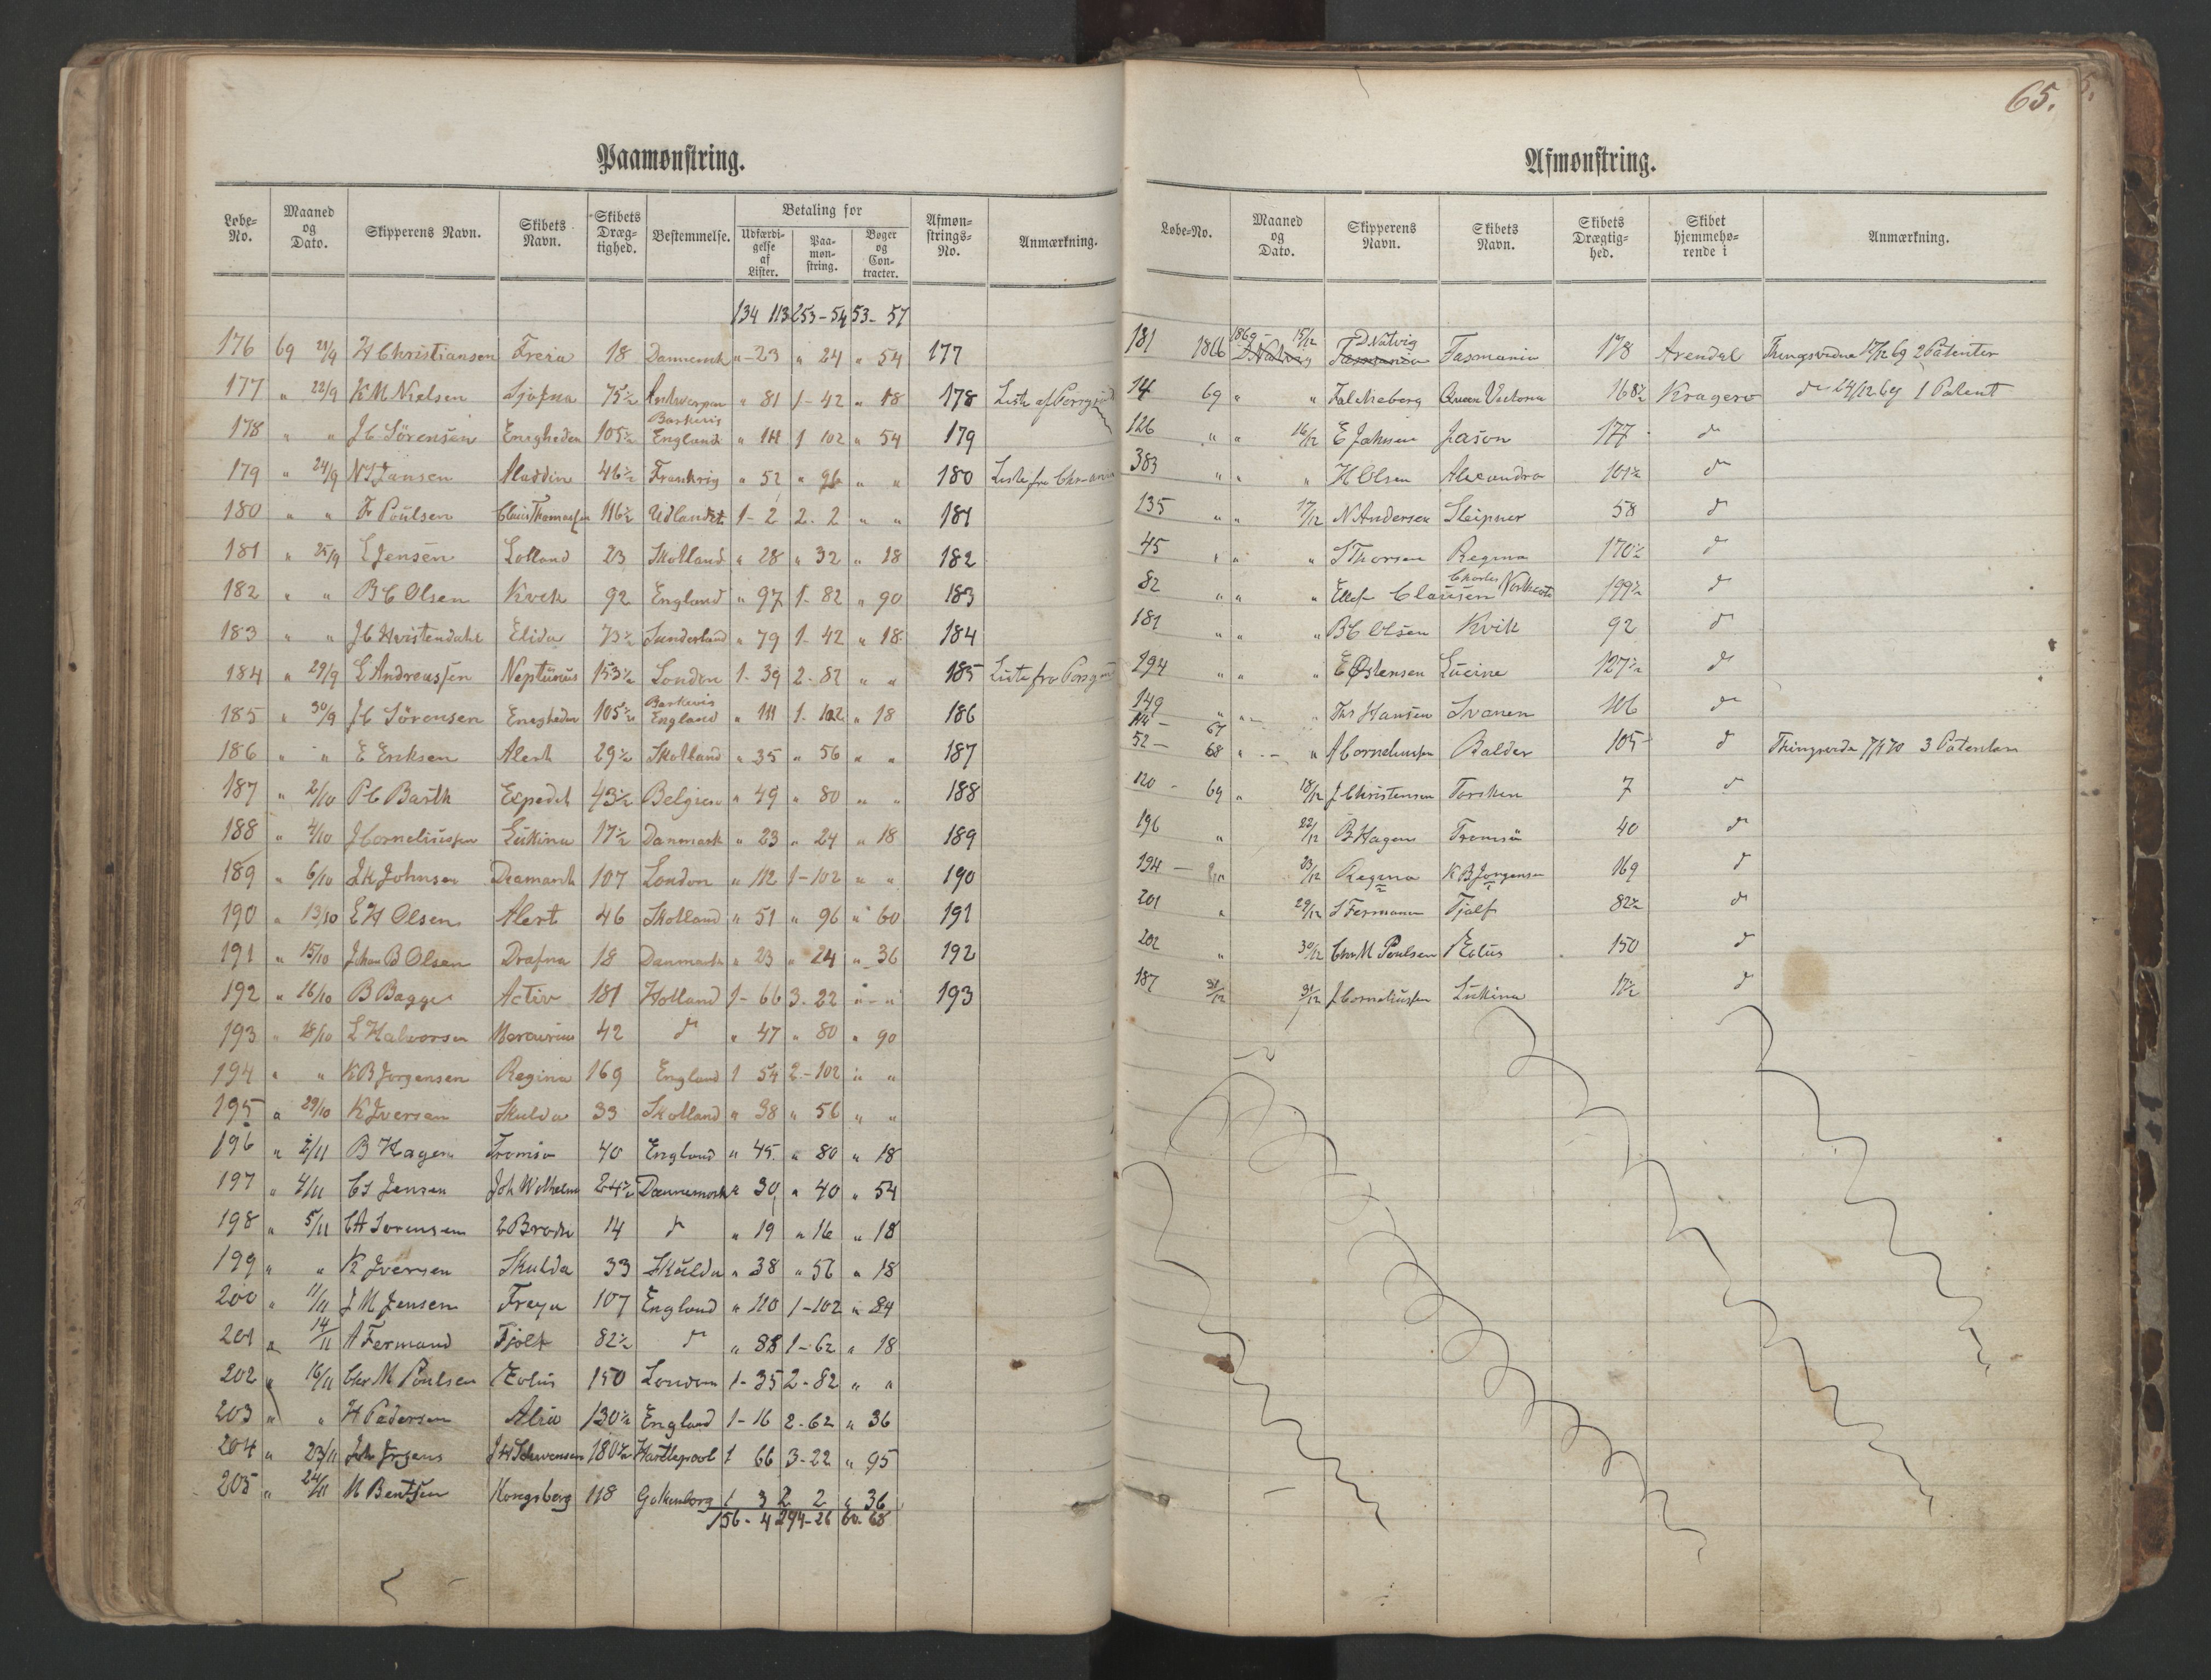 65.
Paamønstring.
Løbe-No. | Maaned og Dato. | Skipperens Navn. | Skibets Navn. | Skibets Dræg-tighed. | Bestemmelse. | Betaling for | Udfærdi-gelse af Lister. | Paa-møn-string. | Bøger og Con-tracter. | Afmøn-strings-No. | Anmærkning.
134 113 | 253-54 | 53-57
176 | 69 21/9 | H Christiansen | Freia | 18 | Dannemark | "-23 | " 24 | " 54 | 177
177 | " 22/9 | K M Nielsen | Sjofna | 75½ | Antwerpen | " 81 | 1-42 | " 18 | 178 | Liste af
178 | " " | J C Sörensen | Enigheden | 105½ | England | " 111 | 1 102 | " 54 | 179
179 | " 24/9 | N J Jansen | Aladdin | 46½ | Frankrig | " 52 | " 96 | " " | 180 | Liste fra
180 | " " | Fr Poulsen | Claus Thomassen | 116½ | Udlandet | 1-2 | 2-2 | " " | 181
181 | " 25/9 | E Jensen | Lolland | 23 | Skotland | " 28 | " 32 | " 18 | 182
182 | " " | B C Olsen | Kvik | 92 | England | " 97 | 1-82 | " 90 | 183
183 | " " | J C Hvistendahl | Elida | 73½ | Sunderland | " 79 | 1-42 | " 18 | 184
184 | " 29/9 | E Andreassen | Neptunus | 153½ | London | 1-39 | 2-82 | " " | 185 | Liste fra
185 | " 30/9 | J C Sörensen | Enigheden | 105½ | England | " 111 | 1-102 | " 18 | 186
186 | " " | E Eriksen | Alert | 29½ | Skotland | " 35 | " 56 | " " | 187
187 | " 2/10 | P C Barth | Expedit | 43½ | Belgien | " 49 | " 80 | " " | 188
188 | " 4/10 | J Corneliussen | Lukina | 17½ | Danmark | " 23 | " 24 | " 18 | 189
189 | " 6/10 | J K Johnsen | Diamant | 107 | London | " 112 | 1-102 | " " | 190
190 | " 13/10 | E H Olsen | Alert | 46 | Skotland | " 51 | " 96 | " 60 | 191
191 | " 15/10 | Johan B Olsen | Drafna | 18 | Danmark | " 23 | " 24 | "-36 | 192
192 | " 16/10 | B Bagge | Activ | 181 | Holland | 1-66 | 3-22 | "-" | 193
193 | " 18/10 | L Halvorsen | Mercurius | 42 | do | " 47 | " 80 | " 90
194 | " " | K B Jorgensen | Regina | 169 | England | 1 54 | 2-102 | " "
195 | " 29/10 | K Iversen | Skulda | 33 | Skotland | " 38 | " 56 | " "
196 | " 2/11 | B Hagen | Tromsø | 40 | England | " 45 | " 80 | " 18
197 | " 4/11 | C S Jensen | Joh Wilhelm | 24½ | Dannemark | " 30 | " 40 | " 54
198 | " 5/11 | C A Sorensen | 2 Brødre | 14 | do | " 19 | " 16 | " 18
199 | " " | K Iversen | Skulda | 33 | Skulda | " 38 | " 56 | " 18
200 | " 11/11 | J M Jensen | Freya | 107 | England | " 110 | 1-102 | " 84
201 | " 14/11 | A Fermand | Fjolf | 82½ | do | " 88 | 1-62 | " 18
202 | " 16/11 | Chr M Poulsen | Æolus | 150 | London | 1-35 | 2-82 | " "
203 | " " | H Pedersen | | 130½ | England | 1-16 | 2-62 | " 36
204 | " 23/11 | Joh | J H Schwensen | 180½ | Hartlepool | 1 66 | 3-22 | " 95
205 | " 24/11 | M Bentsen | Kongsberg | 118 | Gothenborg | 1 3 | 2 2 | " 36
156-4 | 294-26 | 60-68
Afmønstring.
Løbe-No. | Maaned og Dato. | Skipperens Navn. | Skibets Navn. | Skibets Drægtig-hed. | Skibet hjemmehø-rende i | Anmærkning.
181 | 1866 | 1869 15/12 | D Natvig | Tasmania | 178 | Arendal | 17/12 69 2 Patenter
14 | 69 | " " | Falkeberg | Queen Victoria | 168½ | Kragerø | do 24/12 69 1 Patent
126 | " | " 16/12 | E Johnsen | Jason | 177 | do
383 | " | " " | H Olsen | Alexandra | 101½ | do
135 | " | " 17/12 | N Andersen | Sleipner | 58 | do
45 | " | " " | S Thorsen | Regina | 170½ | do
82 | " | " " | Ellef Clausen | Charles Northcote | 199½ | do
181 | " | " " | B C Olsen | Kvik | 92 | do
294 | " | " " | E Østensen | Lucine | 127½ | do
149 | " | " " | Ths Hansen | Svanen | 106 | do
114 - 67
52 - 68 | " " | A Corneliussen | Balder | 105 | do | 7/1 70 3 Patenter
120 - 69 | " 18/12 | J Christensen | Torsken | 7 | do
196 | " | 22/12 | B Hagen | Tromsö | 40 | do
194 - | " | 23/12 | Regina | K B Jorgensen | 169 | do
201 | " | 29/12 | S Fermann | Fjalf | 82½ | do
202 | " | 30/12 | Chr M Poulsen | Æolus | 150 | do
187 | 31/12 | 31/12 | J Corneliussen | Lukina | 17½ | do